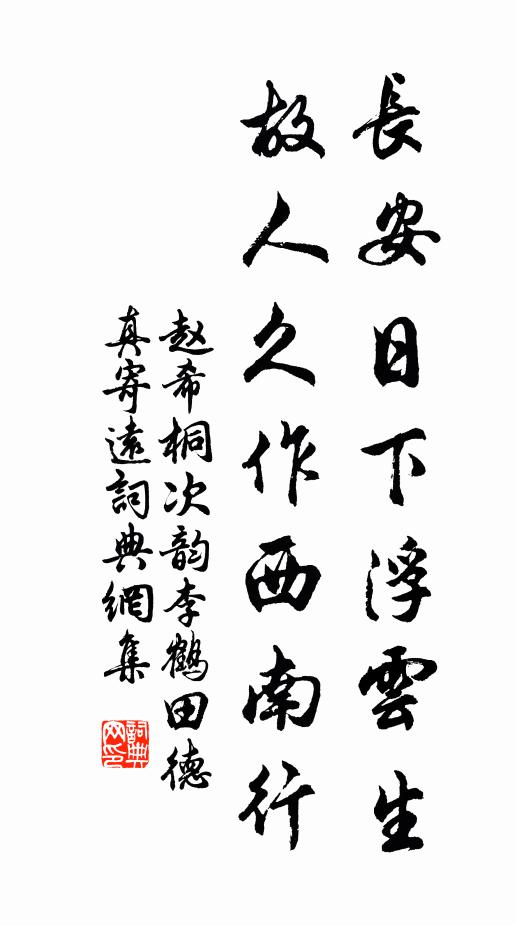 長安日下浮雲生
故人久作西南行
赵希桐次韵李鶴田德
真寄遠詞典網集
詞典
网印